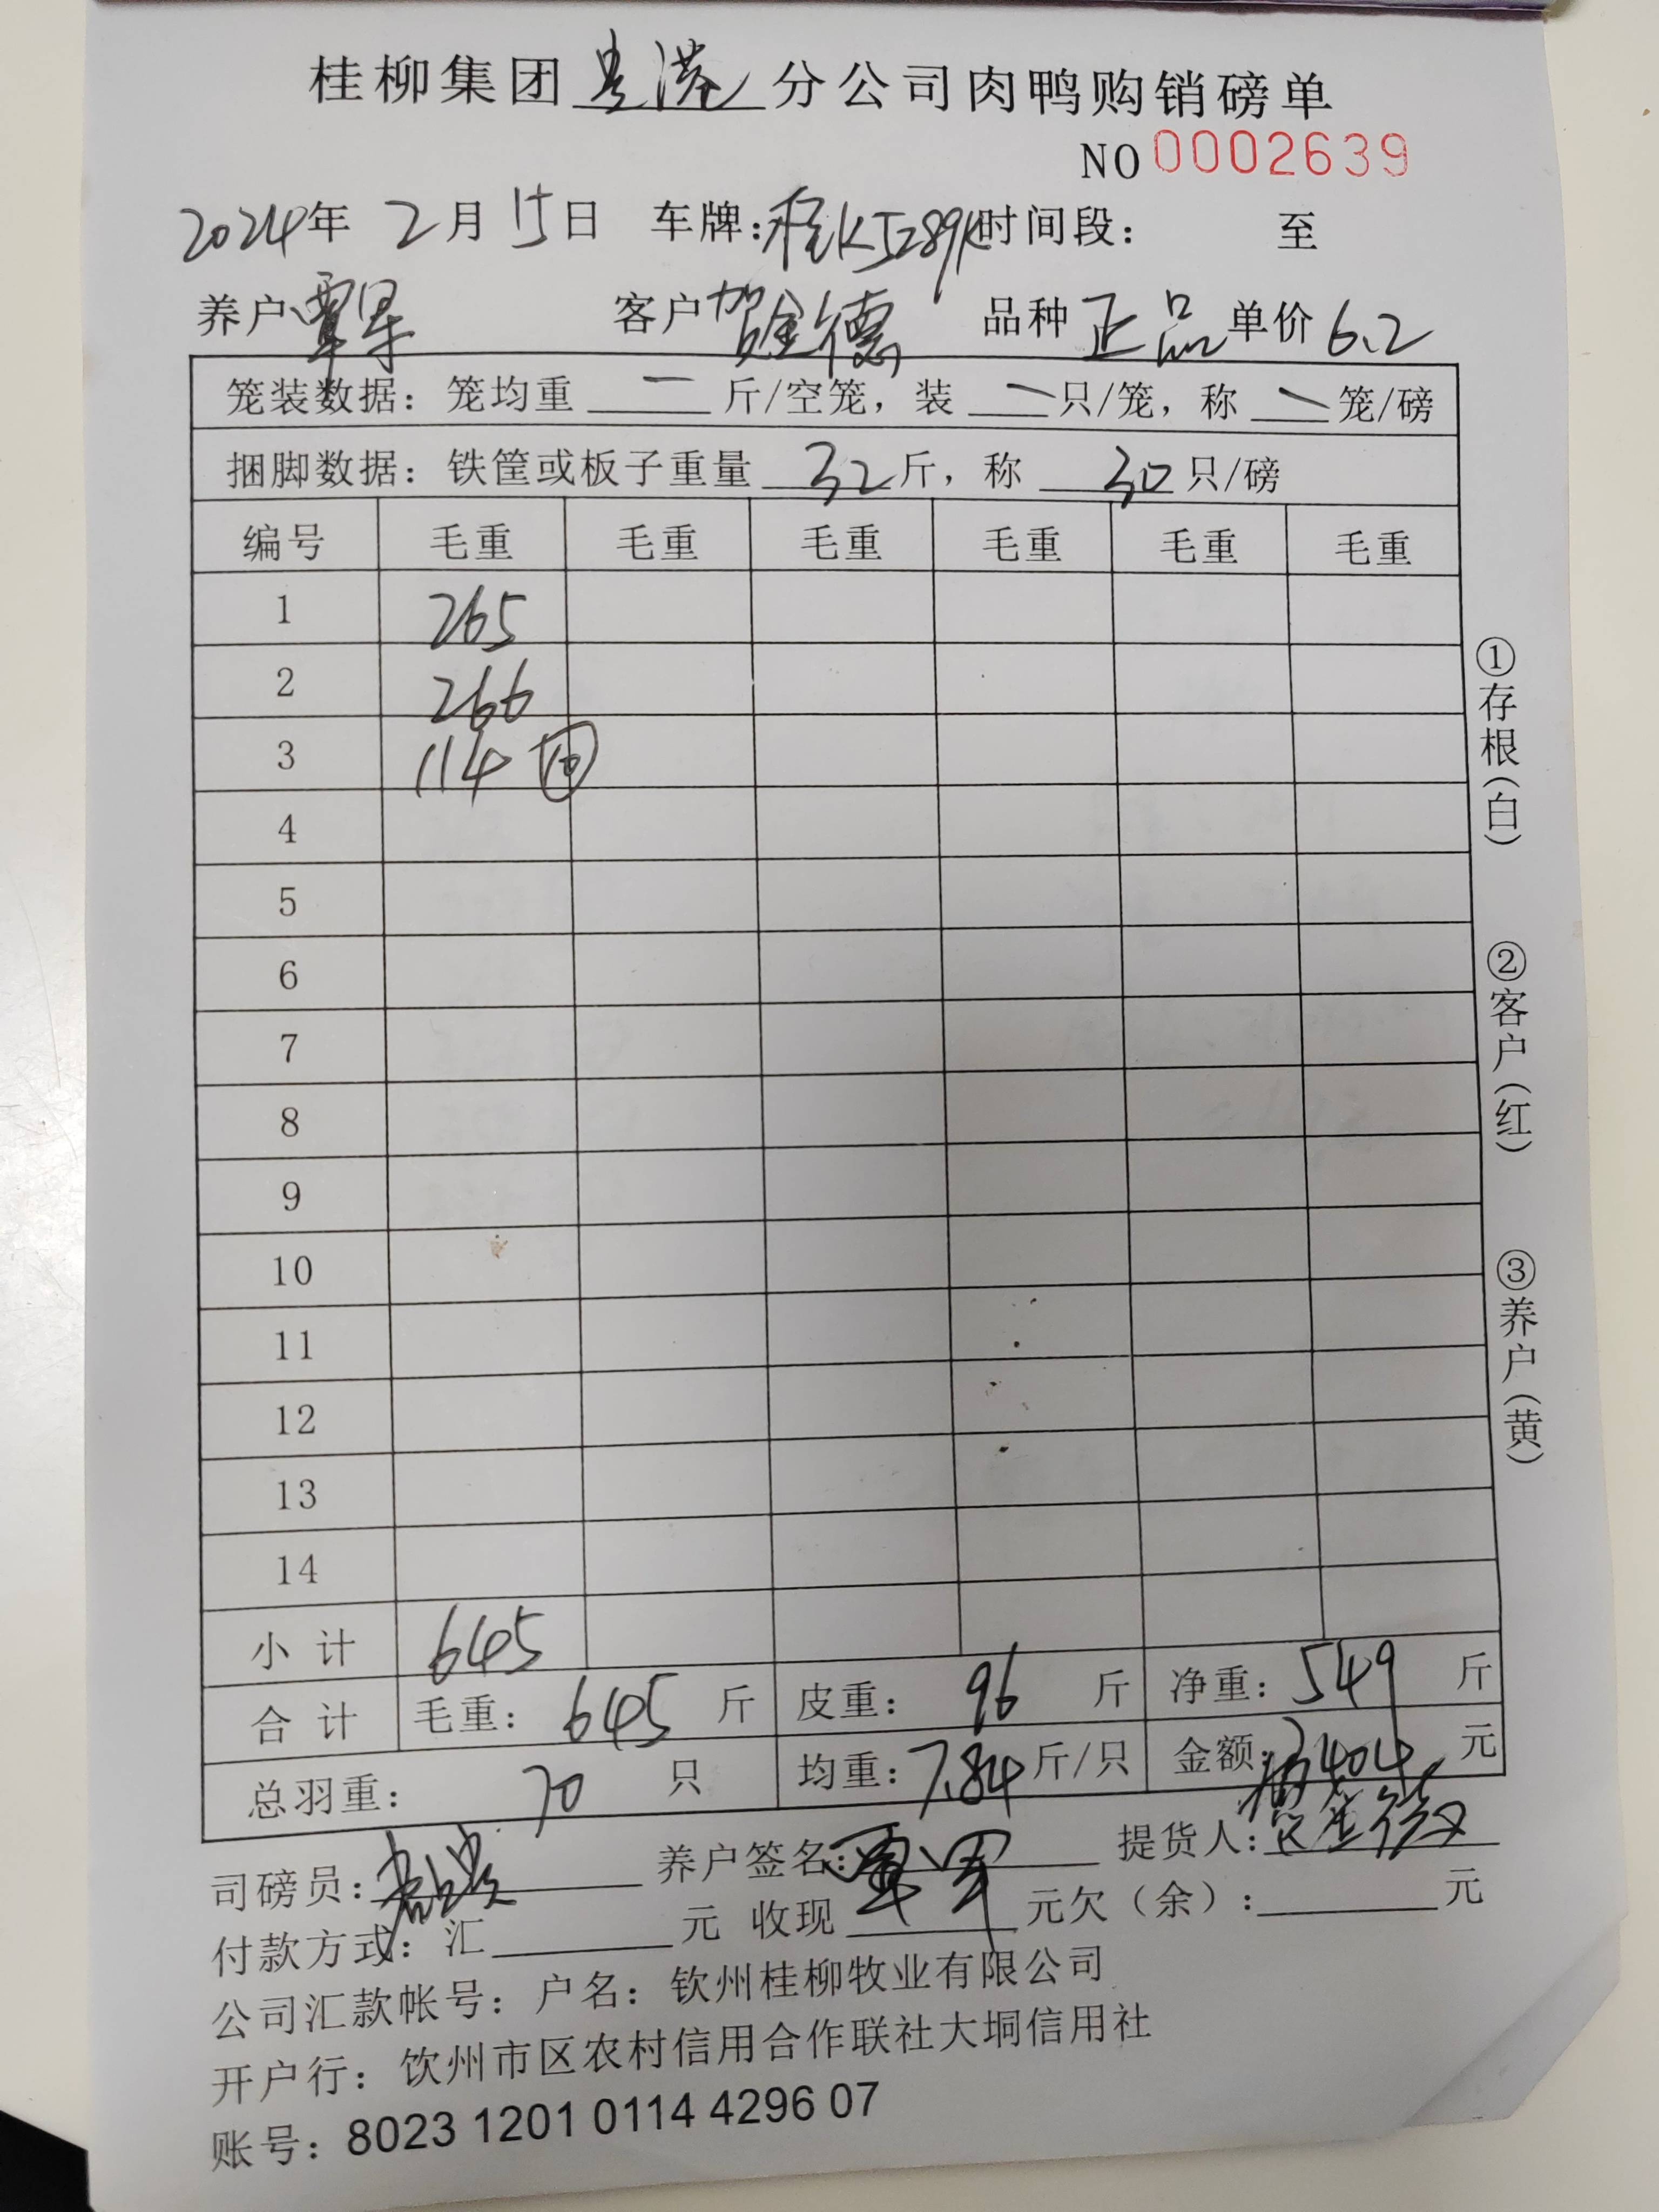 桂柳集团贵港分公司肉鸭购销磅单
NO 0002639
2024年 2月 15日 车牌:桂K5289K时间段: 至
养户 覃 客户 贺金德 品种 正品 单价 6.2
笼装数据:笼均重 一 斤/空笼,装 一 只/笼,称 一 笼/磅
捆脚数据:铁筐或板子重量 32 斤,称 30 只/磅
编号 毛重 毛重 毛重 毛重 毛重 毛重
1 265
2 266
3 114 ⑩
4
5
6
7
8
9
10
11
12
13
14
小计 645
合计 毛重: 645 斤 皮重: 96 斤 净重: 549 斤
总羽重: 70 只 均重: 7.84 斤/只 金额: 3404 元
司磅员: 养户签名: 覃 提货人:
付款方式:汇 元 收现 元欠(余): 元
公司汇款帐号:户名:钦州桂柳牧业有限公司
开户行:饮州市区农村信用合作联社大垌信用社
账号:8023 1201 0114 4296 07
①存根(白)
②客户(红)
③养户(黄)